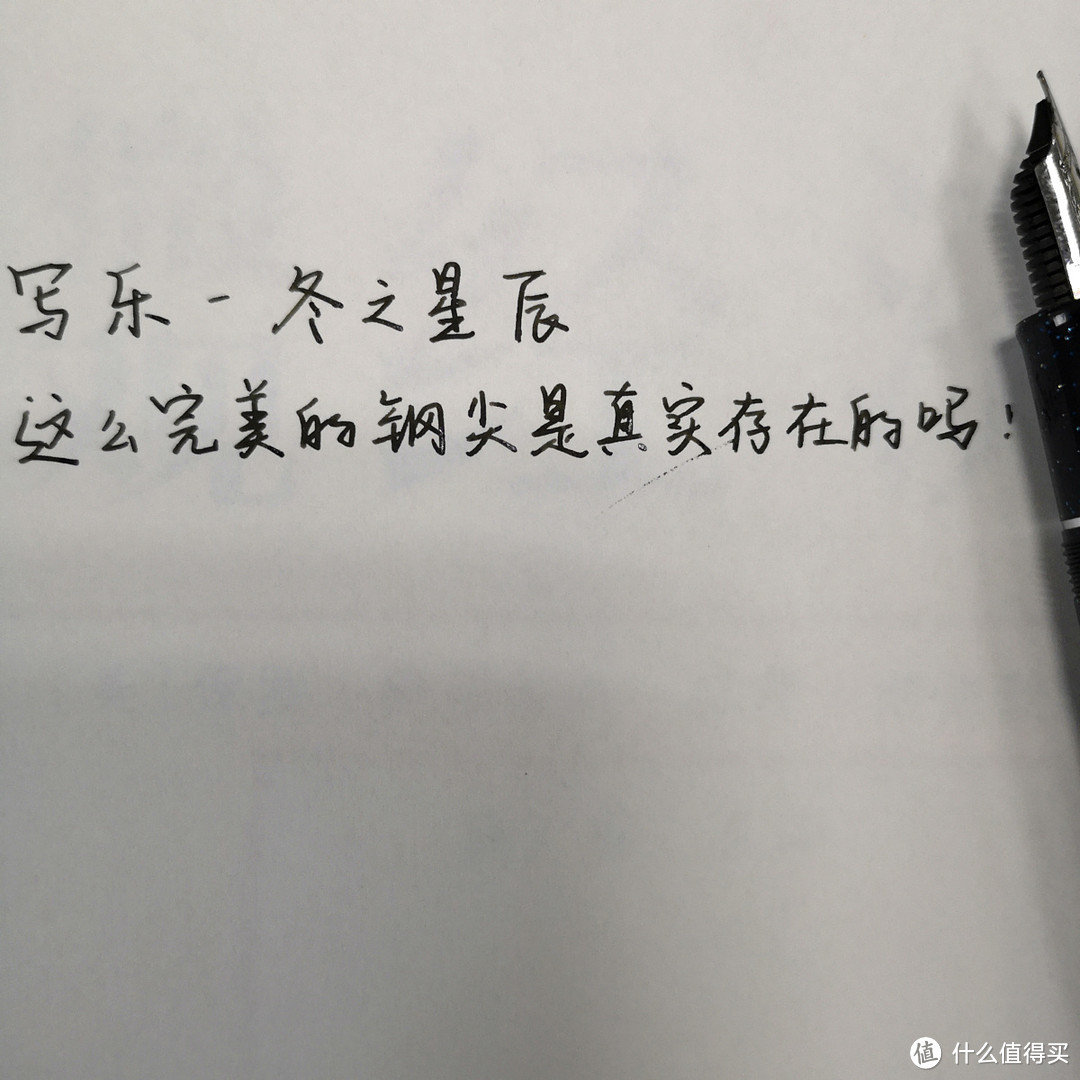 写乐-冬之星辰
这么完美的钢尖是真实存在的吗!
值 什么值得买